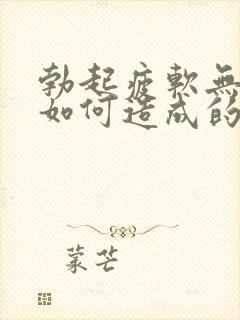 勃起疲軟無
如何造成的
蒙芒